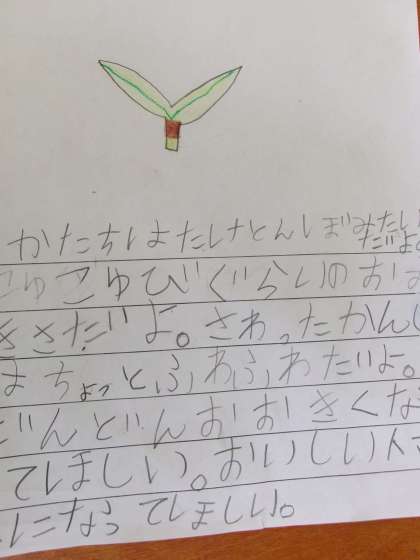 かたちはたけとんぼみたいだよ
こゆびぐらいのおお
きさだよ。さわったかんじ
はちょっとふわふわだよ。
どんどんおおきくなっ
てほしい。おいしい
になってほしい。